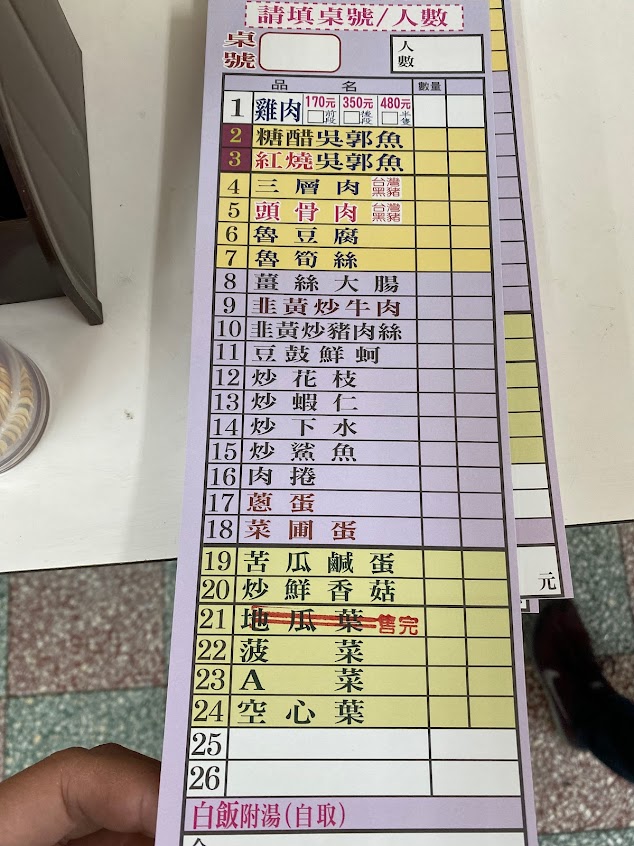 請填桌號/人數
桌號
人數
品名 數量
1 雞肉 170元 前段 350元 後段 480元 半隻
2 糖醋吳郭魚
3 紅燒吳郭魚
4 三層肉 台灣黑豬
5 頭骨肉 台灣黑豬
6 魯豆腐
7 魯筍絲
8 薑絲大腸
9 韭黃炒牛肉
10 韭黃炒豬肉絲
11 豆鼓鮮蚵
12 炒花枝
13 炒蝦仁
14 炒下水
15 炒鯊魚
16 肉捲
17 蔥蛋
18 菜圃蛋
19 苦瓜鹹蛋
20 炒鮮香菇
21 地瓜葉 售完
22 菠菜
23 A菜
24 空心葉
25
26
白飯附湯(自取)
元